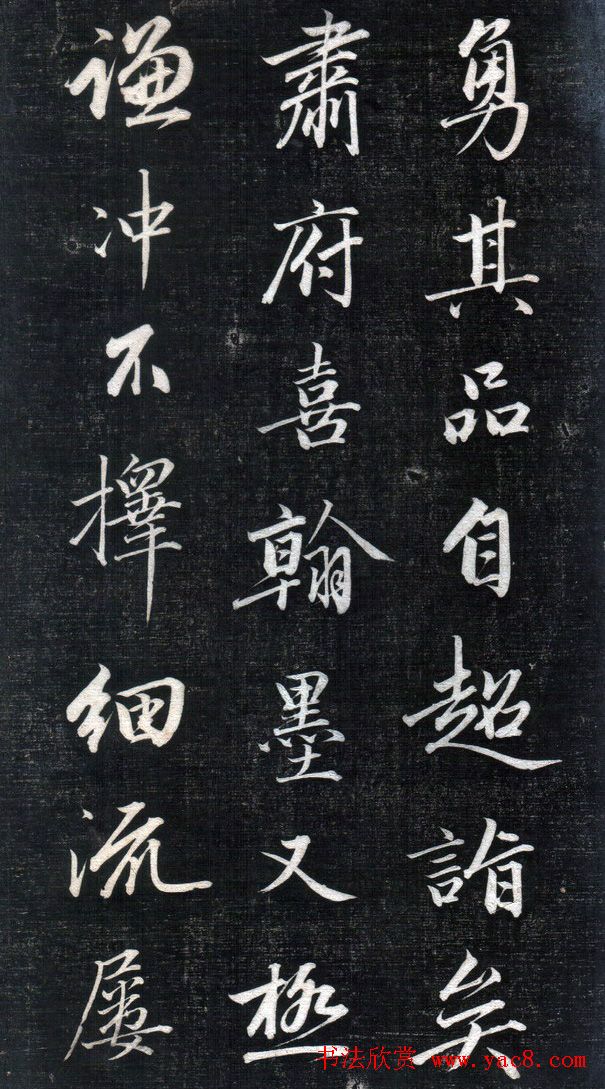 勇其品自超詣矣
肅府喜翰墨又極
謙冲不擇细流屢
书法欣赏 www.yac8.com